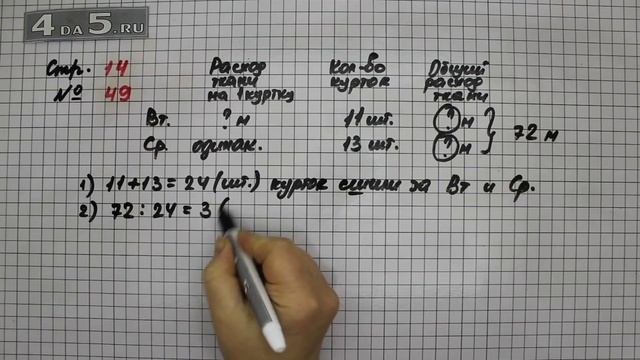 4 DA 5.RU
Стр. 14 Расход Кол-во Общий
№ 49 ткани курток расход
на 1 куртку ткани
Вт. ? м 11 шт. ? м
72 м
Ср. одинак. 13 шт. ? м
1) 11+13=24 (шт.) курток сшили за Вт и Ср.
2) 72:24=3 (